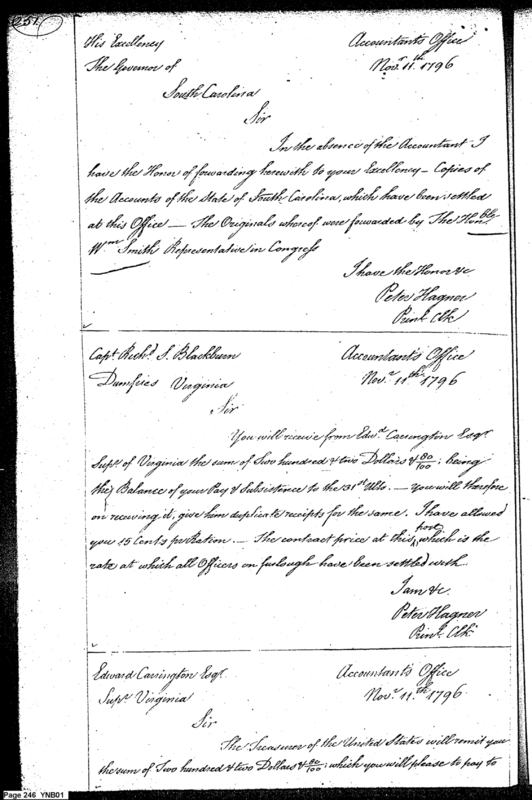 252
His Excellency Accountants Office
The Governor of Novr. 11th. 1796
South Carolina
Sir
In the absence of the Accountant I
have the Honor of forwarding herewith to your Excellency – Copies of
the Accounts of the State of South Carolina, which have been settled
at this Office — The Originals whereof were forwarded by The Honble.
Wm Smith Representative in Congress
I have the Honor &c
Peter Hagner
Prinl. Clk
Capt. Richd. S. Blackburn Accountant's Office
Dumfries Virginia Novr. 11th. 1796
Sir
You will receive from Edwd. Carrington Esqr.
Supr. of Virginia the sum of Two hundred & two Dollars & 80/100; being
the Balance of your Pay & Subsistence to the 31st Ulto. — You will therefore
on receiving it, give him duplicate receipts for the same. I have allowed
you 15 Cents pr Ration. — The contract price at this post, which is the
rate at which all Officers on furlough have been settled with.
I am &c.
Peter Hagner
Prinl. Clk.
Edward Carrington Esqr. Accountant's Office
Supr. Virginia Novr. 11th. 1796
Sir
The Treasurer of the United States will remit you
the sum of Two hundred & two Dollars & 80/100; which you will please to pay to
Page 246 YNB01